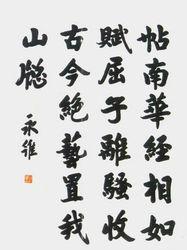 帖南華經相如
賦屈子離騷收
古今絕藝置我
山牕
永雄